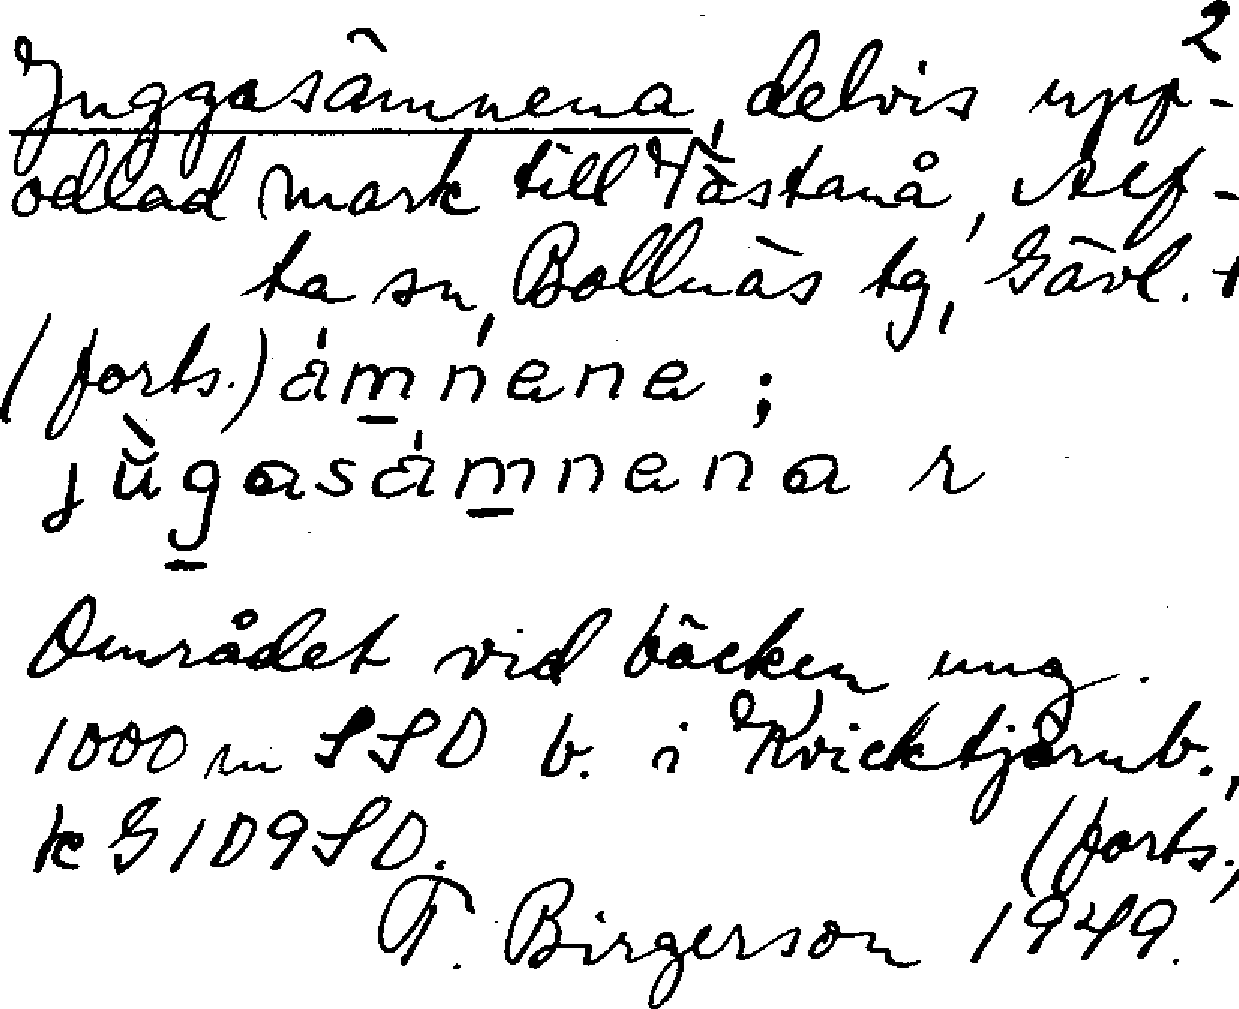 2
Juggasämnena, delvis upp-
odlad mark till Västanå, Alf-
ta sn, Bollnäs tg, Gävl. +
(forts.) ämnena ;
jùgasämnena r
Området vid bäcken ung.
1000 m SSO b. i Kvicktjärnb.,
k G 109 SO. (forts.,
T. Birgerson 1949.